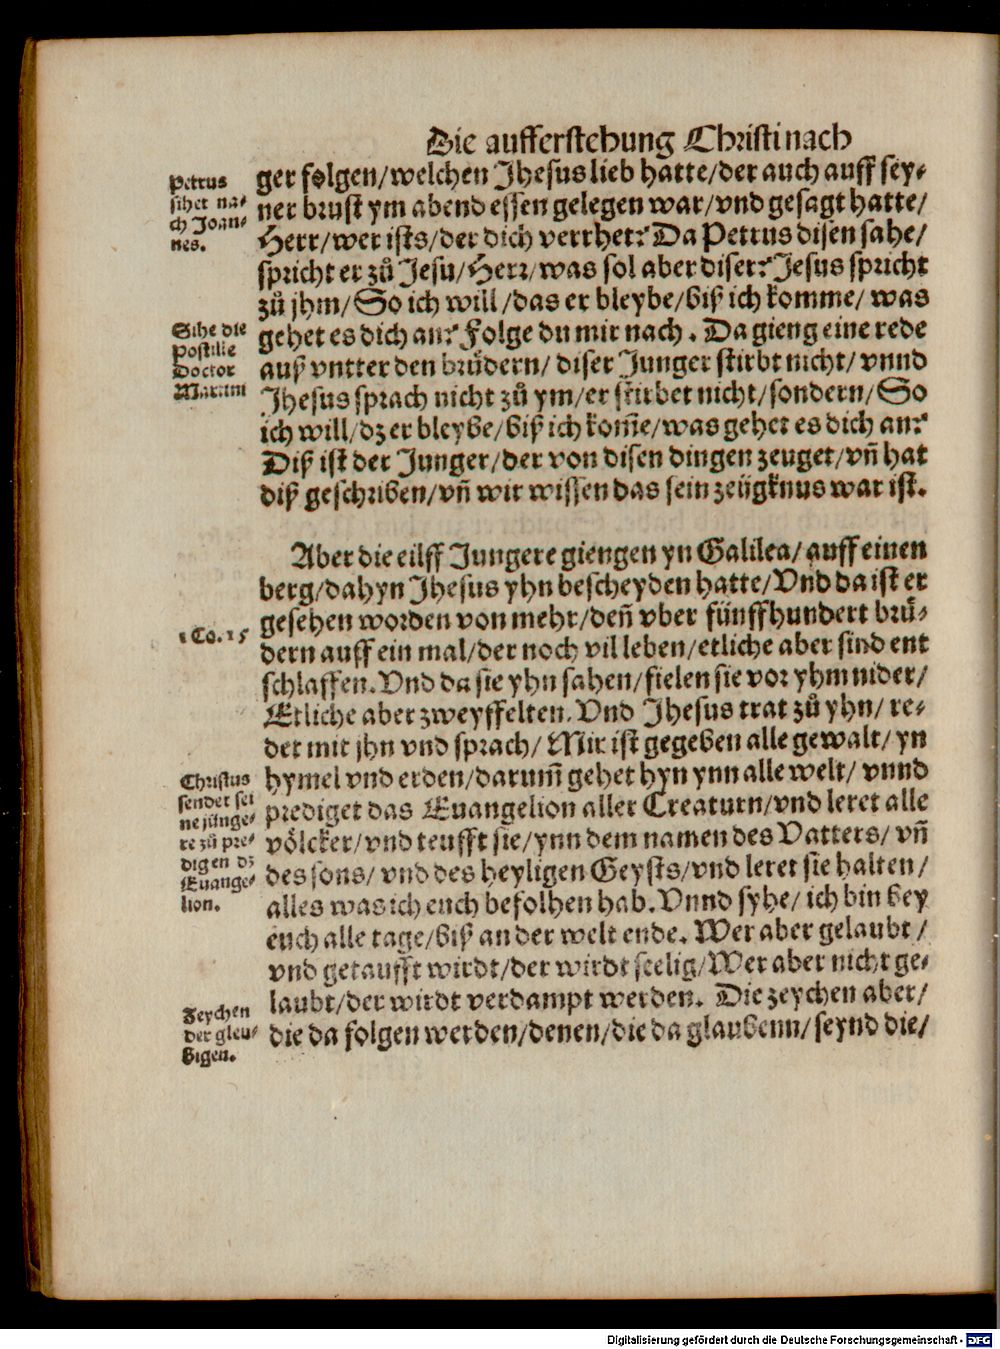 Die aufferstehung Christi nach
Petrus
sihet na-
ch Joan-
nes.
ger folgen/welchen Jhesus lieb hatte/der auch auff sey-
ner brust ym abend essen gelegen war/vnd gesagt hatte/
Herr/wer ists/der dich verrhet? Da Petrus disen sahe/
spricht er zů Jesu/Herr/was sol aber diser? Jesus spricht
zů jhm/So ich will/das er bleybe/biß ich komme/was
Sihe die
Postille
Doctor
Martini
gehet es dich an? Folge du mir nach. Da gieng eine rede
auß vntter den brůdern/diser Junger stirbt nicht/vnnd
Jhesus sprach nicht zů ym/er stirbet nicht/sondern/So
ich will/dz er bleybe/biß ich kom̃e/was gehet es dich an?
Diß ist der Junger/der von disen dingen zeuget/vñ hat
diß geschriben/vñ wir wissen das sein zeügknus war ist.
Aber die eilff Jungere giengen yn Galilea/auff einen
berg/dahyn Jhesus yhn bescheyden hatte/Vnd da ist er
1 Co. 15
gesehen worden von mehr/deñ vber fünffhundert brů-
dern auff ein mal/der noch vil leben/etliche aber sind ent
schlaffen. Vnd da sie yhn sahen/fielen sie vor yhm nider/
Etliche aber zweyffelten. Vnd Jhesus trat zů yhn/re-
det mit jhn vnd sprach/Mir ist gegeben alle gewalt/yn
Christus
sendet sei
ne jünge-
re zů pre-
digen dz
Euange-
lion.
hymel vnd erden/darum̃ gehet hyn ynn alle welt/vnnd
prediget das Euangelion aller Creaturn/vnd leret alle
völcker/vnd teufft sie/ynn dem namen des Vatters/vñ
des sons/vnd des heyligen Geysts/vnd leret sie halten/
alles was ich euch befolhen hab. Vnnd syhe/ich bin bey
euch alle tage/biß an der welt ende. Wer aber gelaubt/
vnd getaufft wirdt/der wirdt seelig/Wer aber nicht ge-
Zeychen
der gleu-
bigen.
laubt/der wirdt verdampt werden. Die zeychen aber/
die da folgen werden/denen/die da glaubenn/seynd die/
Digitalisierung gefördert durch die Deutsche Forschungsgemeinschaft - DFG